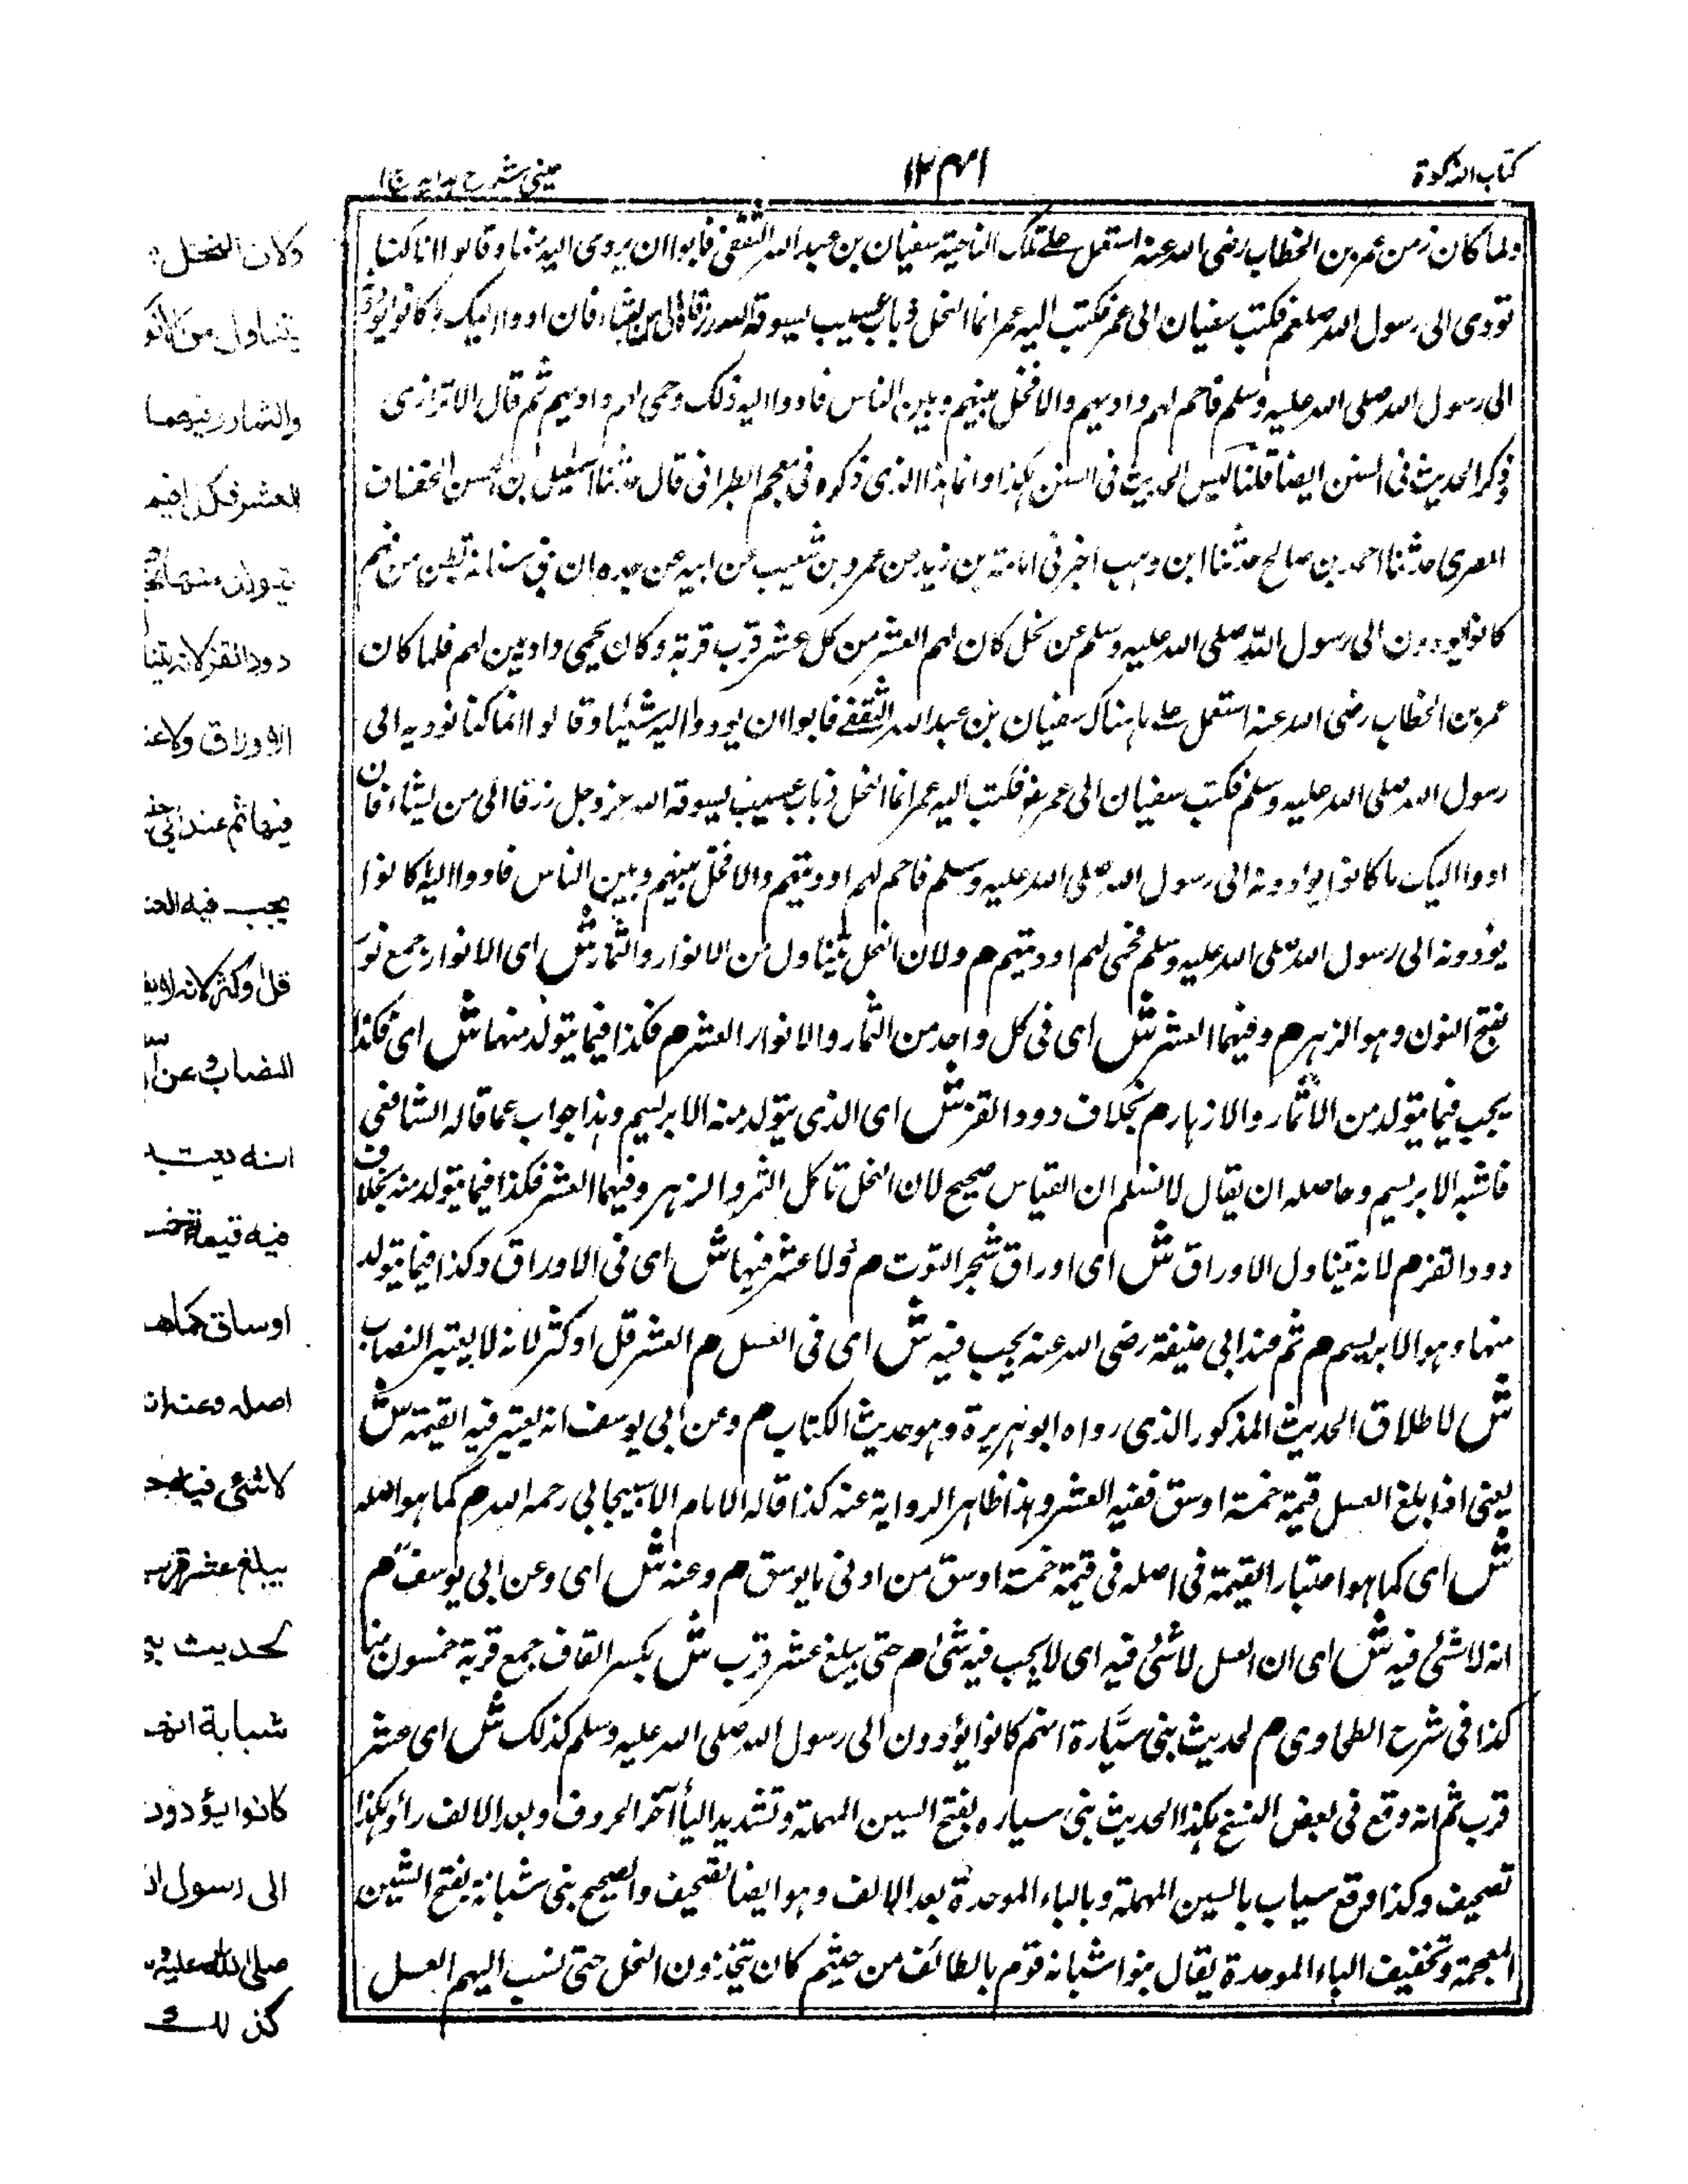 كتاب الزكوة
١٢٤١
عينى شرح هدايه ج١
ولما كان زمن عمر بن الخطاب رضى الله عنه استعمل على تلك الناحية سفيان بن عبد الله الثقفى فابوا ان يودى اليه شيئا وقالوا انا كنا
نودى الى رسول الله صلعم فكتب سفيان الى عمر فكتب اليه عمر انما النحل ذباب غيث يسوقه الله رزقا الى من يشاء فان ادوا اليك ما كانوا يؤدون
الى رسول الله صلى الله عليه وسلم فاحم لهم واديهم والا فخل بينهم وبين الناس فادوا اليه ذلك وحمى لهم واديهم ثم قال الاترازى
ذكر الحديث فى السنن ايضا قلنا ليس الحديث فى السنن هكذا وانما هذا الذى ذكره فى معجم الطبرانى قال حدثنا اسمعيل بن الحسن الخفاف
المصرى حدثنا احمد بن صالح حدثنا ابن وهب اخبرنى اسامة بن زيد عن عمرو بن شعيب عن ابيه عن جده ان بنى بطن من فهم
كانوا يودون الى رسول الله صلى الله عليه وسلم عن نحل كان لهم العشر من كل عشر قرب قربة وكان يحمى واديين لهم فلما كان
عمر بن الخطاب رضى الله عنه استعمل على ما هناك سفيان بن عبد الله الثقفى فابوا ان يودوا اليه شيئا وقالوا انما كنا نوديه الى
رسول الله صلى الله عليه وسلم فكتب سفيان الى عمر فكتب اليه عمر انما النحل ذباب غيث يسوقه الله عز وجل رزقا الى من يشاء فان
ادوا اليك ما كانوا يؤدونه الى رسول الله صلى الله عليه وسلم فاحم لهم اوديتهم والا فخل بينهم وبين الناس فادوا اليه ما كانوا
يؤدونه الى رسول الله صلى الله عليه وسلم فحمى لهم اوديتهم م ولان النحل يتناول من الانوار والثمار ش اى الانوار جمع نور
بفتح النون وهو الزهر م وفيهما العشر ش اى فى كل واحد من الثمار والانوار العشر م فكذا فيما يتولد منها ش اى فكذا
يجب فيما يتولد من الاثمار والازهار م بخلاف دود القز ش اى الذى يتولد منه الابريسم وهذا جواب عما قاله الشافعى
فاشبه الابريسم وحاصله ان يقال لا نسلم ان القياس صحيح لان النحل تاكل الثمر والزهر وفيهما العشر فكذا فيما يتولد منه بخلاف
دود القز م لانه يتناول الاوراق ش اى اوراق شجر التوت م ولا عشر فيها ش اى فى الاوراق وكذا فيما يتولد
منها وهو الابريسم م ثم عند ابى حنيفة رضى الله عنه يجب فيه ش اى فى العسل م العشر قل او كثر لانه لا يعتبر النصاب
ش لاطلاق الحديث المذكور الذى رواه ابو هريرة وهو حديث الكتاب م وعن ابى يوسف انه يعتبر فيه القيمة ش
يعنى اذا بلغ العسل قيمة خمسة اوسق ففيه العشر وهذا ظاهر الرواية عنه كذا قاله الامام الاسبيجابى رحمه الله م كما هو اصله
ش اى كما هو اعتبار القيمة فى اصله فى قيمة خمسة اوسق من ادنى ما يوسق م وعنه ش اى وعن ابى يوسف م
انه لا شئ فيه ش اى ان العسل لا شئ فيه اى لا يجب فيه شئ م حتى يبلغ عشر قرب ش بكسر القاف جمع قربة خمسون منا
كذا فى شرح الطحاوى م لحديث بنى سيّارة انهم كانوا يؤدون الى رسول الله صلى الله عليه وسلم كذلك ش اى عشر
قرب ثم انه وقع فى بعض النسخ هكذا الحديث بنى سياره بفتح السين المهملة وتشديد اليأ آخر الحروف وبعد الالف رأ وهكذا
تصحيف وكذا وقع سياب بالسين المهملة وبالباء الموحدة بعد الالف وهو ايضا تصحيف والصحيح بنى شبابة بفتح الشين
المعجمة وتخفيف الباء الموحدة يقال بنوا شبابة قوم بالطائف من خثيم كان يتخذون النحل حتى نسب اليهم العسل
ولان النحل
يتناول من الانو
والثمار وفيهما
العشر فكذا فيم
يتولد منها بخ
دود القز لانه يتنا
الاوراق ولا عش
فيها ثم عند ابى حن
يجب فيه العش
قل او كثر لانه لا يع
النصاب وعن ا
انه يعتب
فيه قيمة خمس
اوساق كما هو
اصله وعنه ان
لا شئ فيه ح
يبلغ عشر قرب
لحديث بن
شبابة انهم
كانوا يؤدون
الى رسول ال
صلى الله عليه و
كذلك و